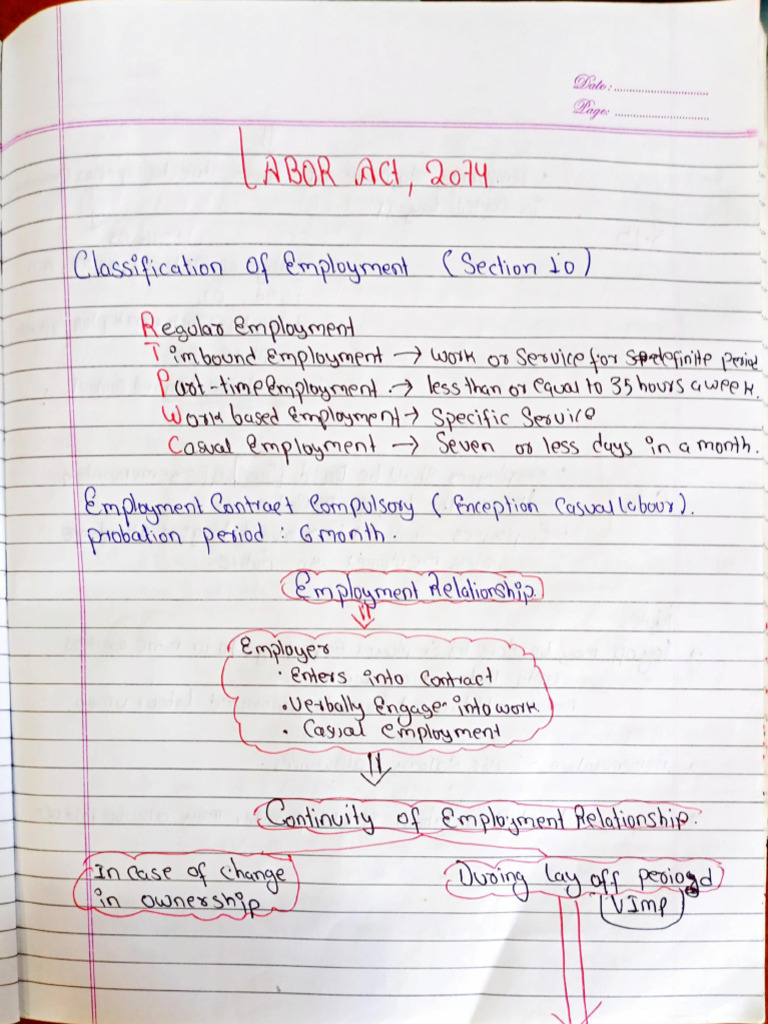 Date: ..............................
Page: ..............................
LABOR ACT, 2074
Classification of Employment (Section 10)
Regular Employment
Timbound Employment → work or service for definite period
Part-time Employment → less than or equal to 35 hours a week.
Work based Employment → Specific Service
Casual Employment → Seven or less days in a month.
Employment Contract Compulsory (Enception Casual labour).
probation period : 6 month.
Employment Relationship.
Employer
· Enters into Contract
· Verbally Engage into work
· Casual Employment
Continuity of Employment Relationship.
In case of change
in ownership
During lay off period
VImp